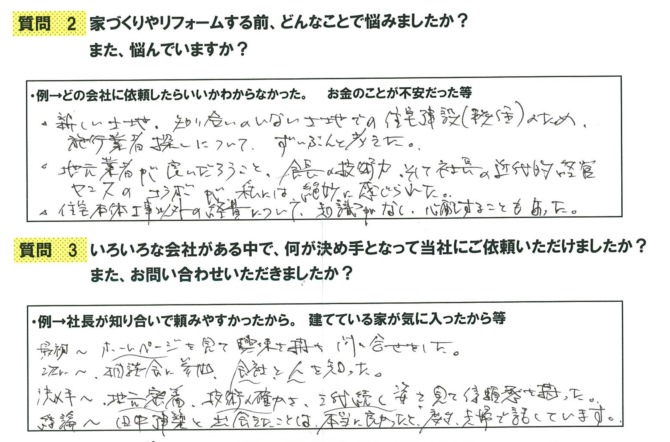 質問 2 家づくりやリフォームする前、どんなことで悩みましたか？
また、悩んでいますか？
・例→どの会社に依頼したらいいかわからなかった。 お金のことが不安だった等
・新しい土地。知り合いのいない土地での住宅建設(移住)のため、
施行業者探しについて、ずいぶんと考えた。
・地元業者が良いだろうこと、会長の技術力、そして社長の近代的経営
センスのコラボが、私には絶妙に感じられた。
・住宅本体工事以外の経費について、知識がなく、心配することもあった。
質問 3 いろいろな会社がある中で、何が決め手となって当社にご依頼いただけましたか？
また、お問い合わせいただきましたか？
・例→社長が知り合いで頼みやすかったから。 建てている家が気に入ったから等
最初～ホームページを見て興味を持ち問い合せをした。
次に～、相談会に参加、会社と人を知った。
決め手～、地元密着、技術の確かさ、 続く姿を見て信頼感を持った。
結論～田中建築と出会えたことは、本当に良かったと、 夫婦で話しています。